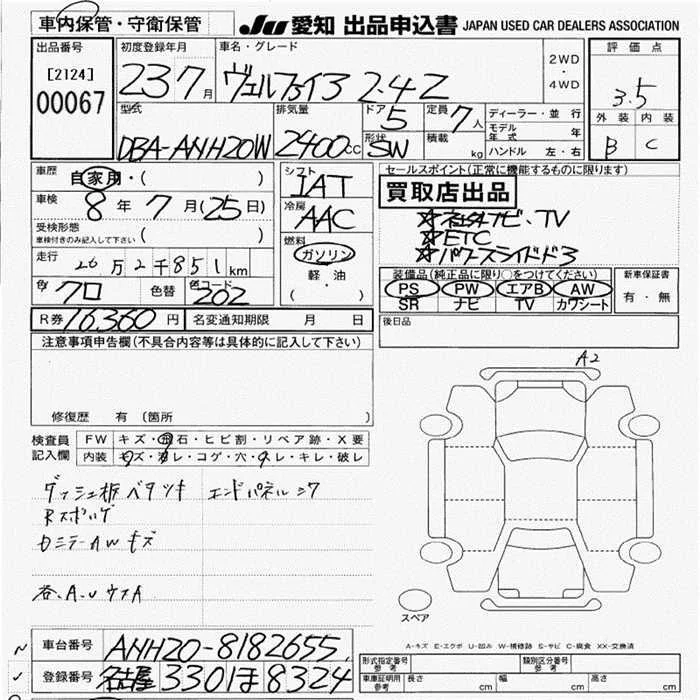 車内保管・守衛保管
JU 愛知 出品申込書 JAPAN USED CAR DEALERS ASSOCIATION
出品番号
[2124]
00067
初度登録年月
23 7月
車名・グレード
ヴェルファイヤ 2.4Z
2WD
・
4WD
評価点
3.5
外装 内装
B C
型式
DBA-ANH20W
排気量
2400cc
ドア
5
形状
SW
定員
7人
積載
kg
ディーラー・並行
モデル年式 年
ハンドル 左・右
車歴
自家用・( )
車検
8年 7月(25日)
受検形態
車検付きのみ記入して下さい ( )
走行
26万2千851km
色 クロ 色替 色コード 202
シフト
IAT
冷房
AAC
燃料
ガソリン
軽油
( ・ )
セールスポイント(正常に機能するものに限ります)
買取店出品
☆社外ナビ、TV
☆ETC
☆パワースライドドア
装備品(純正品に限り○をつけてください)
PS PW エアB AW
SR ナビ TV カワシート
新車保証書
有・無
R券 16,360円 名変通知期限 月 日
後日品
注意事項申告欄(不具合内容等は具体的に記入して下さい)
修復歴 有 (箇所 )
検査員
記入欄
FW キズ・飛石・ヒビ割・リペア跡・X要
内装 キズ・汚レ・コゲ・穴・スレ・キレ・破レ
ダッシュ板ベタツキ エンドパネルシワ
AWキズ
各、A、U
A2
スペア
A-キズ E-エクボ U-凹み W-補修跡 S-サビ C-腐食 XX-交換済
車台番号 ANH20-8182655
登録番号 名古屋 330 ほ 8324
型式指定番号 参考
類別区分番号 参考
車庫証明用 参考 長さ cm 幅 cm 高さ cm